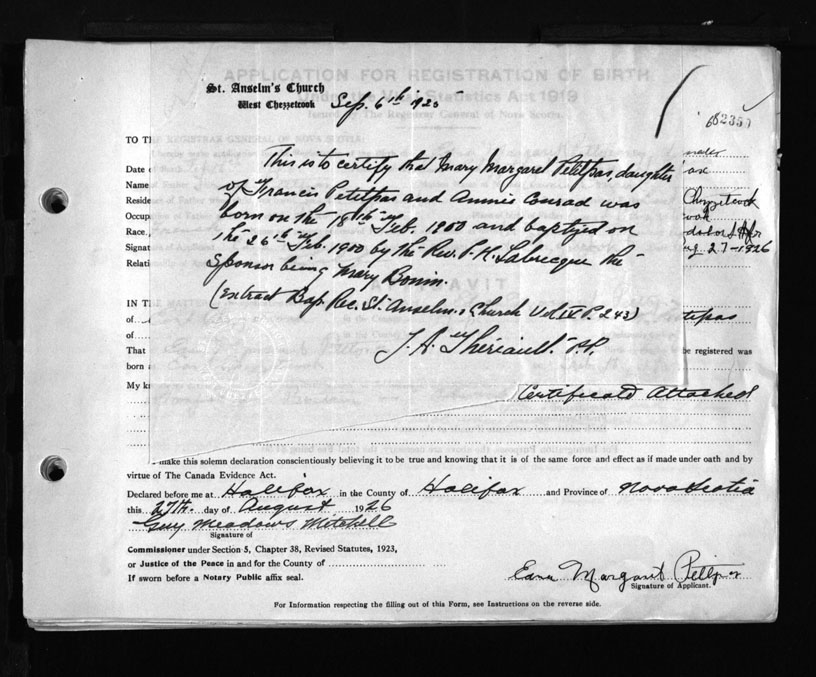 APPLICATION FOR REGISTRATION OF BIRTH
Under the Vital Statistics Act 1919
Issued by The Registrar General of Nova Scotia
St. Anselm's Church
West Chezzetcook Sep. 6th 1925
TO TH
This is to certify that Mary Margaret Petitpas, daughter
Date o
Name
of Francis Petitpas and Annie Conrad was
Reside Chezzetcook
born on the 18th Feb. 1900 and baptized on
Occup
Race
the 26th Feb. 1900 by the Rev. Labrecque the
Signat 27-1926
Relati
Sponsor being Mary Bonin.
(Extract Bap. Rec. St. Anselm's Church Vol IV P. 243)
IN T
of
of
J. A. Theriault P.P.
That be registered was
born
My k
Certificate Attached
make this solemn declaration conscientiously believing it to be true and knowing that it is of the same force and effect as if made under oath and by
virtue of The Canada Evidence Act.
Declared before me at Halifax in the County of Halifax and Province of Nova Scotia
this 27th. day of August 1926
Guy Meadows Mitchell
Signature of
Commissioner under Section 5, Chapter 38, Revised Statutes, 1923,
or Justice of the Peace in and for the County of
If sworn before a Notary Public affix seal.
Edna Margaret Petitpas
Signature of Applicant.
For Information respecting the filling out of this Form, see Instructions on the reverse side.